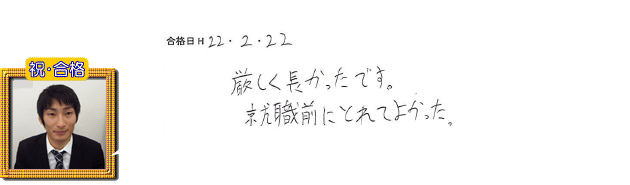 合格日 H 22・2・22
祝・合格
厳しく長かったです。
就職前にとれてよかった。